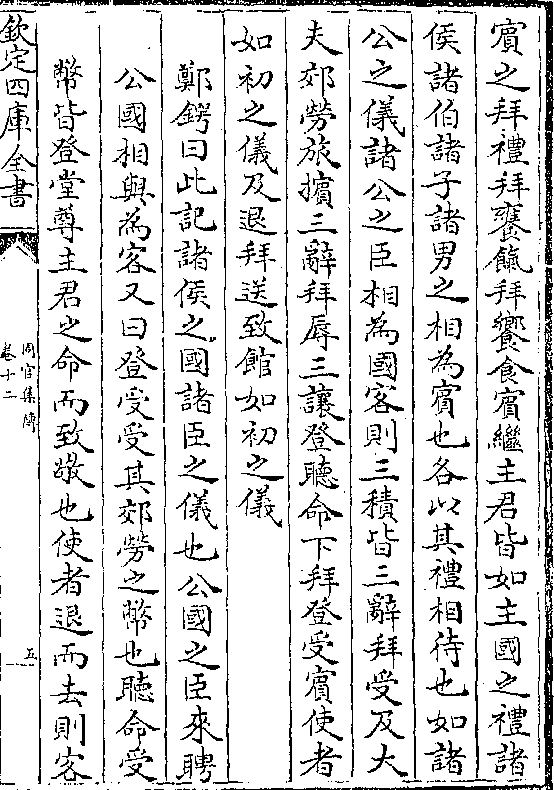 賔之拜禮拜饔餼拜饗食賔繼主君皆如主國之禮諸
侯諸伯諸子諸男之相為賔也各以其禮相待也如諸
公之儀諸公之臣相為國客則三積皆三辭拜受及大
夫郊勞旅擯三辭拜辱三讓登聽命下拜登受賔使者
如初之儀及退拜送致館如初之儀
鄭鍔曰此記諸侯之國諸臣之儀也公國之臣來聘
公國相與為客又曰登受受其郊勞之幣也聽命受
幣皆登堂尊主君之命而致敬也使者退而去則客
欽定四庫全書
周官集傳
卷十二
五